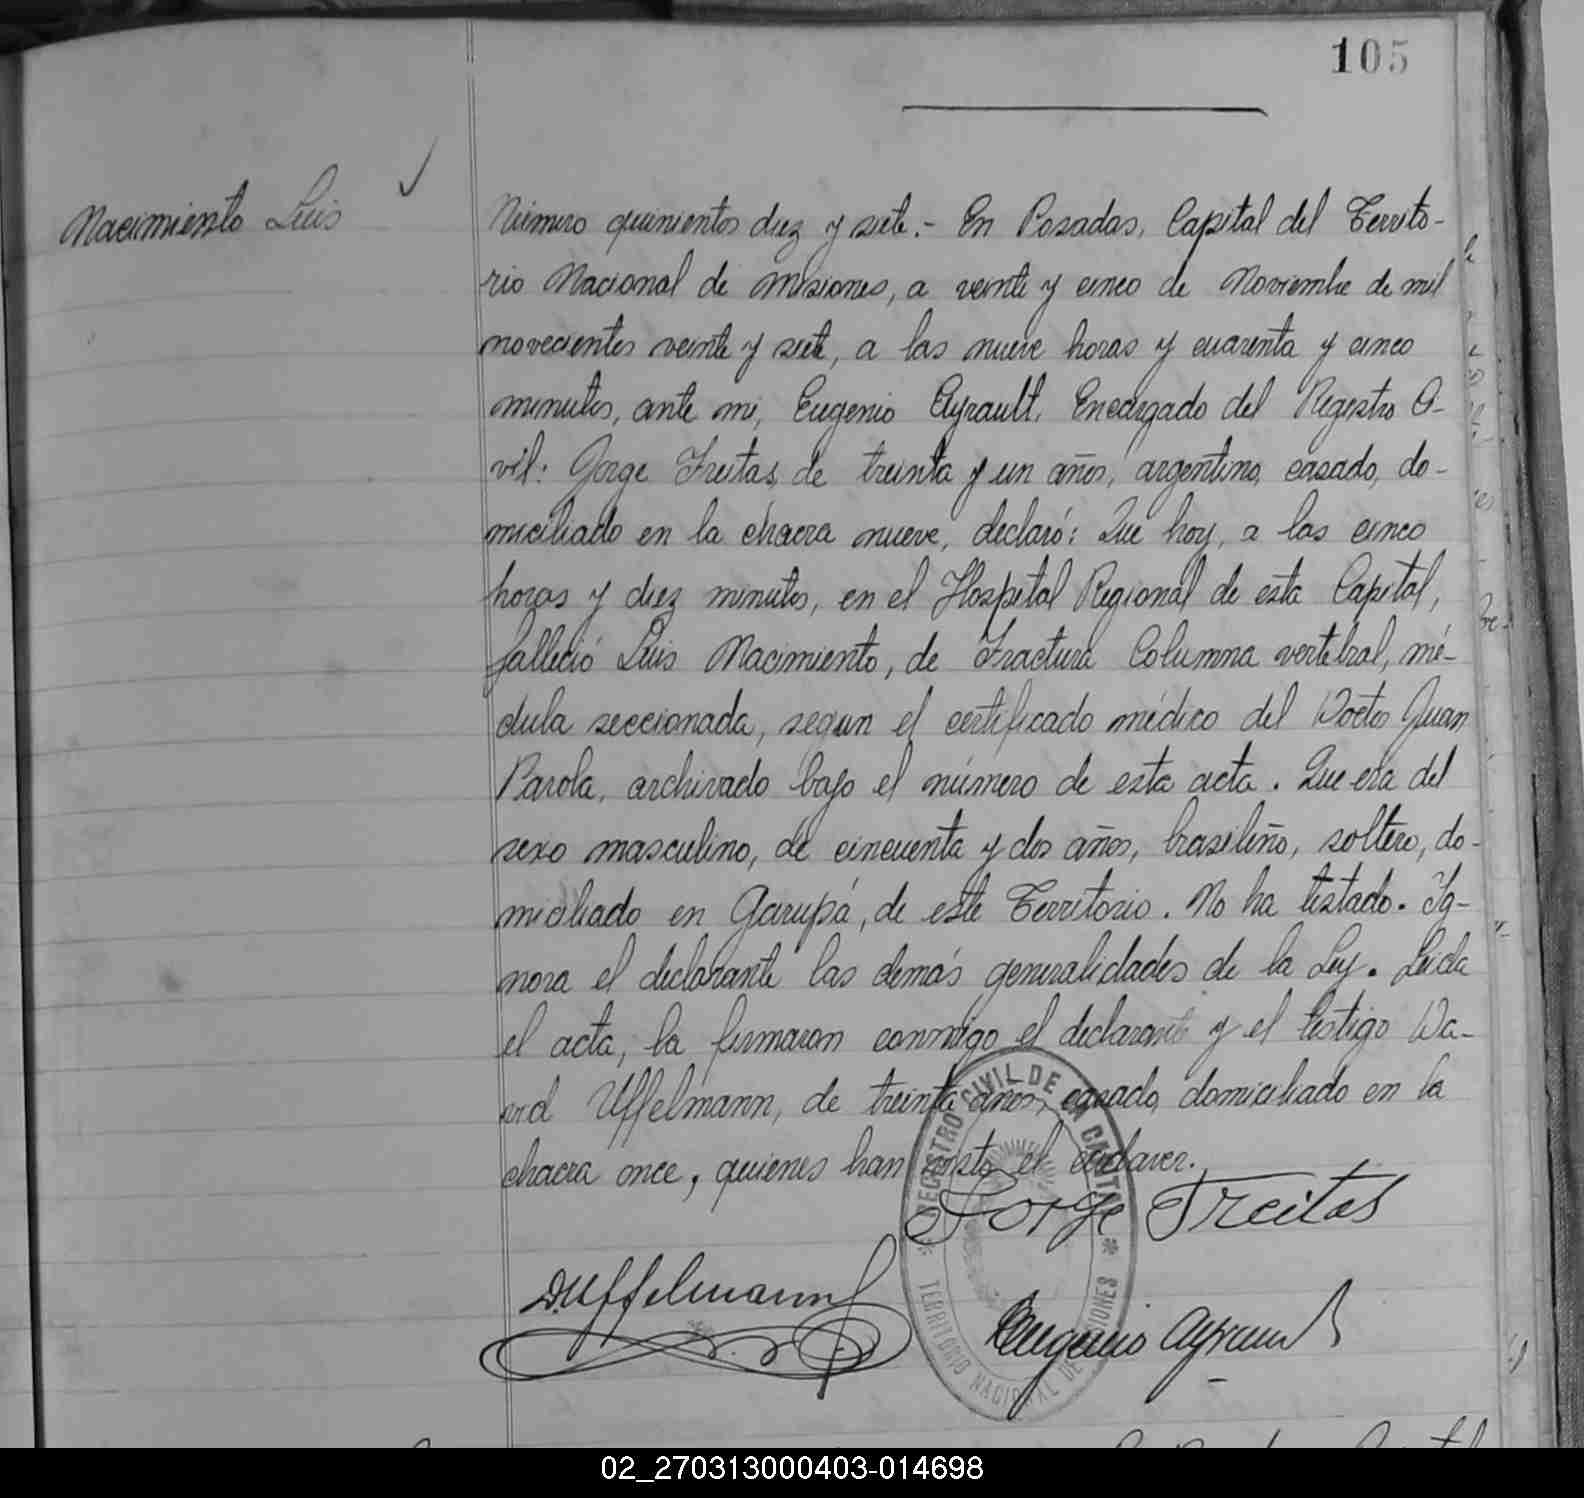 105
Nacimiento Luis
Número quinientos diez y siete.- En Posadas, Capital del Territo-
rio Nacional de Misiones, a veinte y cinco de Noviembre de mil
novecientos veinte y siete, a las nueve horas y cuarenta y cinco
minutos, ante mi, Eugenio Ayrault, Encargado del Registro Ci-
vil: Jorge Freitas, de treinta y un años, argentino, casado, do-
miciliado en la chacra nueve, declaró: Que hoy, a las cinco
horas y diez minutos, en el Hospital Regional de esta Capital,
falleció Luis Nacimiento, de Fractura Columna vertebral, mé-
dula seccionada, segun el certificado médico del Doctor Juan
Parola, archivado bajo el número de esta acta. Que era del
sexo masculino, de cincuenta y dos años, brasileño, soltero, do-
miciliado en Garupá, de este Territorio. No ha testado. Ig-
nora el declarante las demás generalidades de la Ley. Leida
el acta, la firmaron conmigo el declarante y el testigo Da-
vid Uffelmann, de treinta años, casado, domiciliado en la
chacra once, quienes han visto el cadaver.
Jorge Freitas
D. Uffelmann
Eugenio Ayrault
REGISTRO CIVIL DE LA CAPITAL
TERRITORIO NACIONAL DE MISIONES
02_270313000403-014698